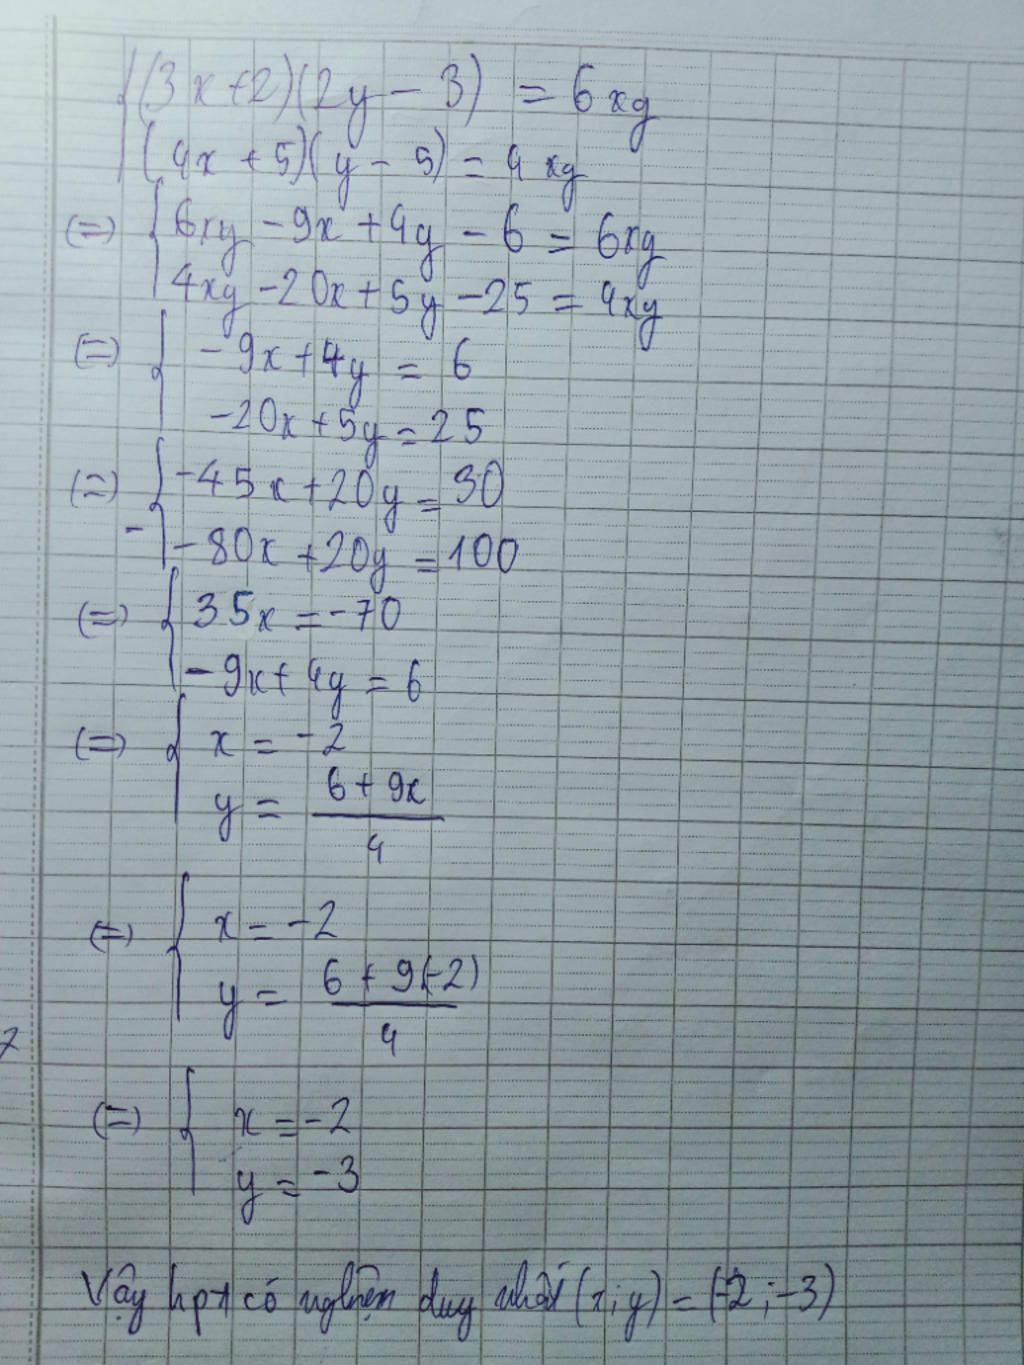 {(3x+2)(2y-3) = 6xy
(4x+5)(y-5) = 4xy
(=) {6xy -9x +4y -6 = 6xy
4xy -20x +5y -25 = 4xy
(=) {-9x+4y = 6
-20x+5y = 25
(=) {-45x+20y = 30
- -80x+20y = 100
(=) {35x = -70
-9x+4y = 6
(=) {x = -2
y = \frac{6+9x}{4}
(=) {x = -2
y = \frac{6+9(-2)}{4}
(=) {x = -2
y = -3
Vậy hpt có nghiệm duy nhất (x;y) = (-2;-3)